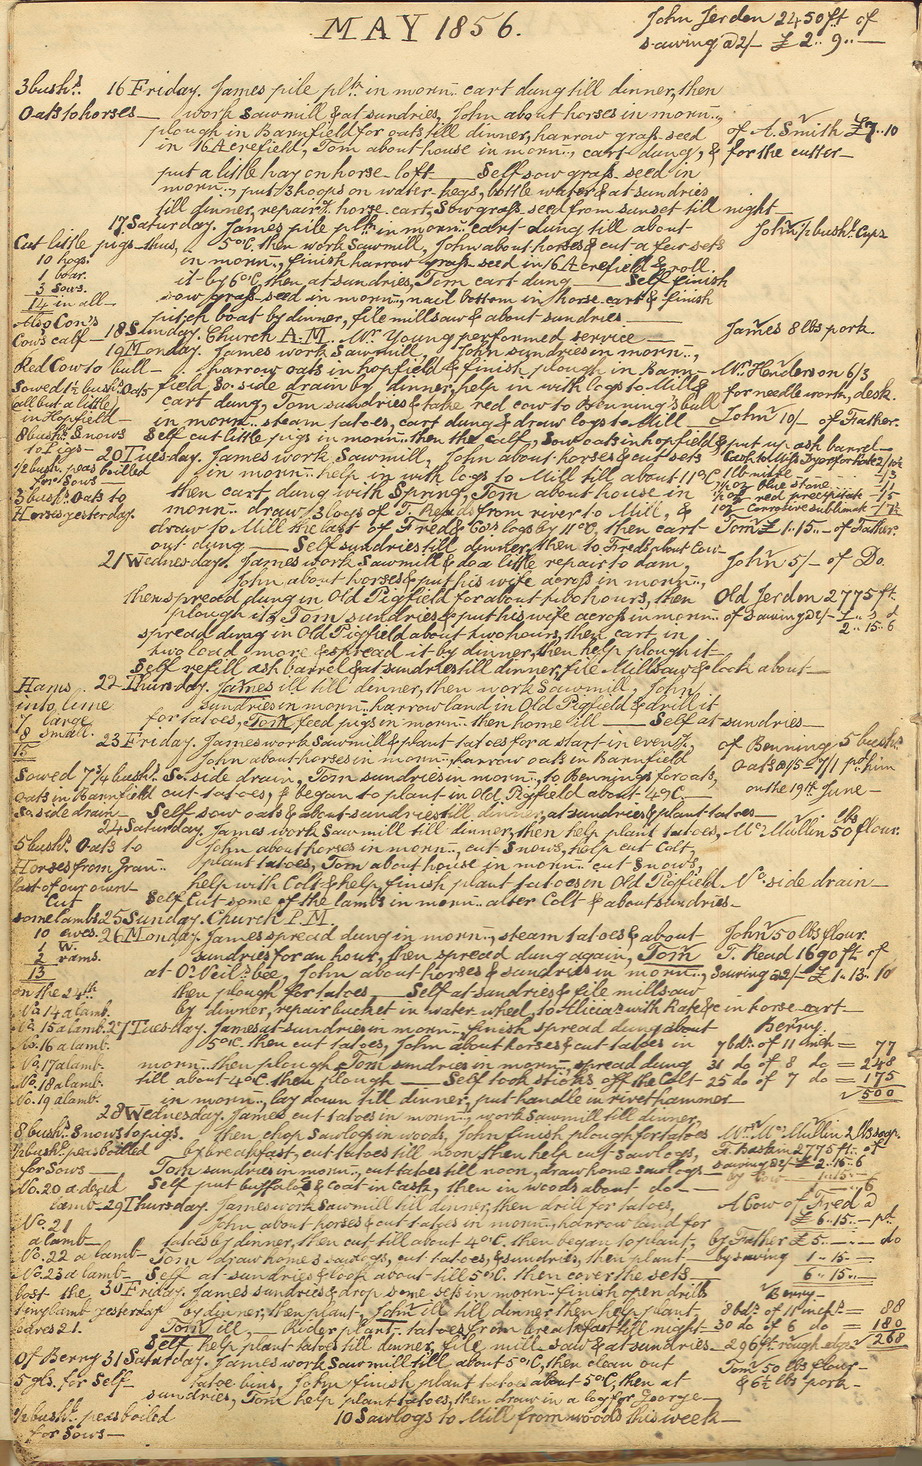 MAY 1856.
John Jerden 2450 ft of
sawing @ 2/- £ 2.. 9.. —
3 bush.s 16 Friday. James pile plk in morn.., cart dung till dinner, then
Oats to horses — work Sawmill & at sundries, John about horses in morn..,
plough in Barnfield for oats till dinner, harrow grass seed of A. Smith £7..10
in 16 Acrefield, Tom about house in morn.., cart dung, & for the cutter —
put a little hay on horse loft — Self sow grass seed in
morn.., put 3 hoops on water kegs, bottle water & at sundries
till dinner, repair horse cart, Sow grass seed from sunset till night —
17 Saturday. James pile plk in morn.. cart dung till about John bush.s Cups
Cut little pigs thus, 5 O'C, then work Sawmill, John about horses & cut a few sets
10 hogs. in morn.., finish harrow grass seed in 16 Acrefield & roll
1 boar. it by 6 O'C, then at sundries, Tom cart dung — Self finish
3 Sows. sow grass seed in morn.., nail bottom in horse cart & finish
14 in all — pitch boat by dinner, file millsaw & about sundries —
Also Con's
Cow's calf — 18 Sunday. Church A.M. Mr Young performed service — James 8 lbs pork
19 Monday. James work Sawmill, John sundries in morn..,
Red Cow to bull — harrow oats in hopfield & finish plough in Barn- Mrs Henderson 6/3
Sowed 1½ bush.s Oats field So. side drain by dinner, help in with logs to Mill & for needlework, desk
all but a little cart dung, Tom sundries & take red cow to Benning's bull
in Hopfield — in morn.. steam tatoes, cart dung & draw logs to Mill — John 10/- of Father.
8 bush.s Snows Self cut little pigs in morn.. then the calf, Sow oats in hopfield & put up ash barrel —
to Pigs — 20 Tuesday. James work Sawmill, John about horses & cut sets
½ bush. peas boiled in morn.. help in with logs to Mill till about 11 O'C
for Sows — then cart dung with Spring, Tom about house in blue stone
3 bush.s Oats to morn.. draw 3 logs of T. Reads from river to Mill, & red precipitate
Horses yesterday. draw to Mill the last of Fred & Co's logs by 11 O'C, then cart Corrosive sublimate
out dung — Self sundries till dinner, then to Fred's about Cow — Tom £1..15.. — of Father.
21 Wednesday. James work Sawmill & do a little repair to dam, John 5/- of Do.
John about horses & put his wife across in morn..,
then spread dung in Old Pigfield for about two hours, then Old Jerden 2775 ft
plough it, Tom sundries & put his wife across in morn.. of sawing @ 2/- £ s d
spread dung in Old Pigfield about two hours, then cart in 2..15..6
two load more & spread it by dinner, then help plough it —
Self refill ash barrel & at sundries till dinner, file Millsaw & look about —
Hams 22 Thursday. James ill till dinner, then work Sawmill, John
into lime sundries in morn.. harrow land in Old Pigfield & drill it
7 large for tatoes, Tom feed pigs in morn.. then home ill — Self at sundries —
8 small.
15 23 Friday. James work Sawmill & plant tatoes for a start in even'g, of Benning 5 bush.s
John about horses in morn.., harrow oats in Barnfield Oats @ 1/5 = 7/1 pd him
Sowed 7¾ bush.s So. side drain, Tom sundries in morn.., to Bennings for oats, on the 19th June —
Oats in Barnfield cut tatoes, & began to plant in Old Pigfield about 4 O'C. —
So. side drain — Self sow oats & about sundries till dinner, at sundries & plant tatoes —
24 Saturday. James work Sawmill till dinner, then help plant tatoes, Mr Mullin 50 lbs flour.
5 bush.s Oats to John about horses in morn.., cut Snows, help cut Colt,
Horses from Gran.. plant tatoes, Tom about house in morn.. cut Snows,
last of our own — help with Colt & help, finish plant tatoes in Old Pigfield No. side drain —
Cut Self Cut some of the lambs in morn.. alter Colt & about sundries —
some lambs 25 Sunday. Church P.M.
10 ewes. 26 Monday. James spread dung in morn.., steam tatoes & about John 50 lbs flour.
1 W. sundries for an hour, then spread dung again, Tom T. Read 1690 ft of
2 rams. at O'Neil's bee, John about horses & sundries in morn.., Sawing @ 2/- £1..13..10
13
on the 24th then plough for tatoes — Self at sundries & file millsaw
No. 14 a lamb. by dinner, repair bucket in water wheel, to Alicias with Kate &c in horse cart —
No. 15 a lamb. 27 Tuesday. James at sundries in morn.. finish spread dung about Berry.
No. 16 a lamb. 5 O'C. then cut tatoes, John about horses & cut tatoes in 7 bds. of 11 inch = 77
No. 17 a lamb. morn.. then plough, Tom sundries in morn.., spread dung 31 do of 8 do = 248
No. 18 a lamb. till about 4 O'C. then plough — Self took sticks off the Colt 25 do of 7 do = 175
No. 19 a lamb. in morn.. lay down till dinner, put handle in rivet hammer 500
28 Wednesday. James cut tatoes in morn.. work Sawmill till dinner,
8 bush.s Snows to pigs. then chop Sawlogs in woods, John finish plough for tatoes Mullin 2 lbs soap.
½ bush. peas boiled by breakfast, cut tatoes till noon, then help cut Sawlogs, F. Haskin 2775 ft. of
for Sows — Tom sundries in morn.., cut tatoes till noon, draw home Sawlogs — sawing @ 2/- £2..15..6
No. 20 a dead Self put buffalos & coat in cask, then in woods about do —
lamb — 29 Thursday. James work Sawmill till dinner, then drill for tatoes, A Cow of Fred @
No. 21 John about horses & cut tatoes in morn.., harrow land for £6..15.. — pd.
a lamb — tatoes by dinner, then cut till about 4 O'C. then began to plant, by Father £5 ..—..— do
No. 22 a lamb — Tom draw home sawlogs, cut tatoes, & sundries, then plant — by sawing 1..15 —
No. 23 a lamb — Self at sundries & look about till 5 O'C. then cover the sets — 6..15.. —
lost the 30 Friday. James sundries & drop some sets in morn.. finish open drills Berry —
tiny lamb yesterday by dinner, then plant, John ill till dinner then help plant, 8 bds. of 11 inch = 88
leaves 21. Tom ill, — Rider plant tatoes from breakfast till night — 30 do of 6 do = 180
Self help plant tatoes till dinner, file mill saw & at sundries. 296 ft rough edge 268
Of Berry 31 Saturday. James work Sawmill till about 5 O'C, then clean out Tom 50 lbs flour
5 gls. for Self — tatoe bins, John finish plant tatoes about 5 O'C, then at & 6½ lbs pork —
sundries, Tom help plant tatoes, then draw in a log for George —
½ bush. peas boiled 10 Sawlogs to Mill from woods this week —
for Sows —